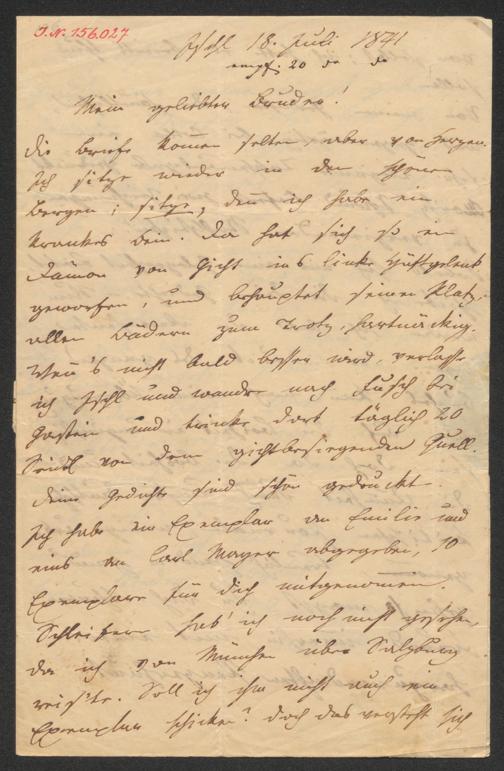 I.N. 156.027
Ischl 18. Juli 1841
empf. 20 do do
Mein geliebter Bruder!
die Briefe kommen selten, aber von Herzen.
Ich sitze wieder in den schönen
Bergen; sitze, denn ich habe ein
krankes Bein. Da hat sich so ein
Dämon von Gicht ins linke Hüftgelenk
geworfen, und behauptet seinen Platz,
allen Bädern zum Trotz, hartnäckig.
Wenn's nicht bald besser wird, verlasse
ich Ischl und wandre nach Fusch bei
Gastein und trinke dort täglich 20
Seidl von dem gichtbesiegenden Quell.
Deine Gedichte sind schön gedruckt.
Ich habe ein Exemplar an Emilie und
eins an Carl Mayer abgegeben, 10
Exemplare für dich mitgenommen.
Schleifern hab' ich noch nicht gesehen,
da ich von München über Salzburg
reis'te. Soll ich ihm nicht auch ein
Exemplar schicken? doch das versteht sich